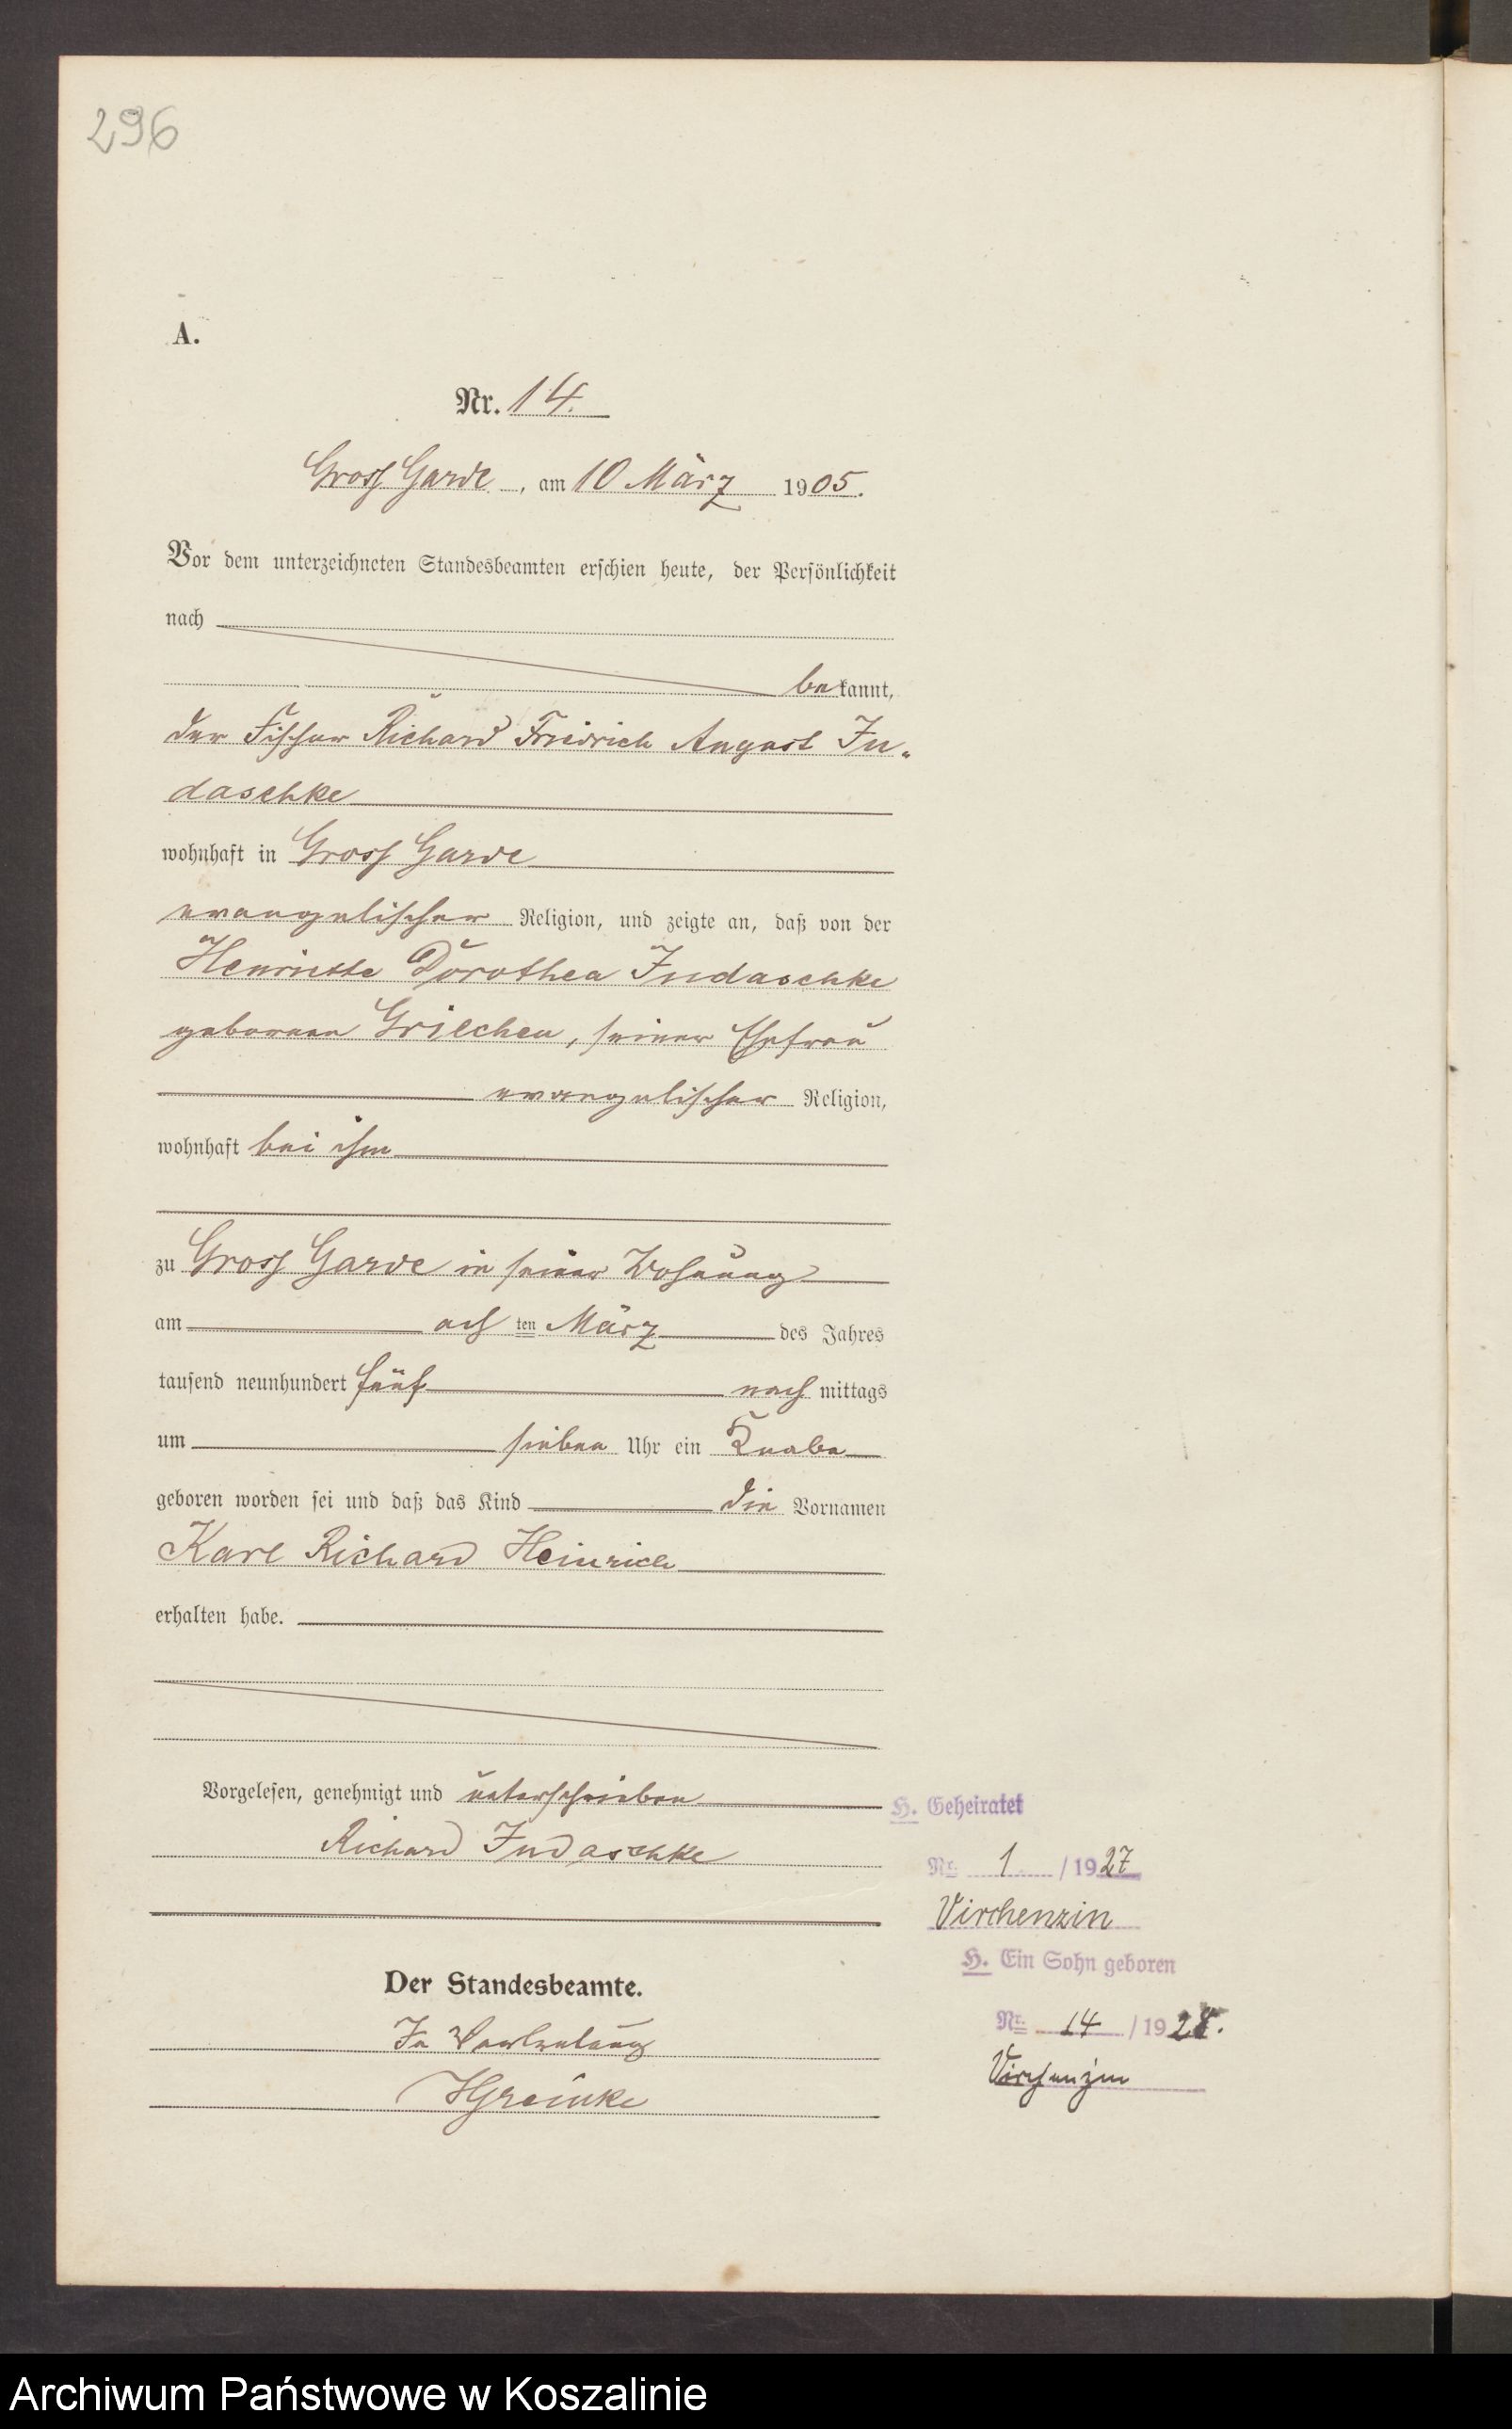 296
A.
Nr. 14.
Gross Garde, am 10 März 1905.
Vor dem unterzeichneten Standesbeamten erschien heute, der Persönlichkeit
nach
bekannt,
der Fischer Richard Friedrich August Ju-
daschke
wohnhaft in Gross Garde
evangelischer Religion, und zeigte an, daß von der
Henriette Dorothea Judaschke
geborenen Griechen, seiner Ehefrau
evangelischer Religion,
wohnhaft bei ihm
zu Gross Garde in seiner Wohnung
am acht ten März des Jahres
tausend neunhundert fünf nach mittags
um sieben Uhr ein Knabe
geboren worden sei und daß das Kind die Vornamen
Karl Richard Heinrich
erhalten habe.
Vorgelesen, genehmigt und unterschrieben
Richard Judaschke
Der Standesbeamte.
In Vertretung
H. Geheiratet
Nr. 1 / 1927
Virchenzin
H. Ein Sohn geboren
Nr. 14 / 1928.
Virchenzin
Archiwum Państwowe w Koszalinie